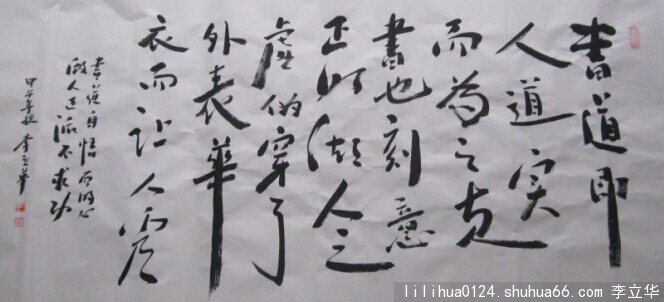 書道即
人道实
而為之
書也刻意
人之
虚伪穿了
外表華
衣而让人
書道自悟而明心
做人正派不求功
甲午年秋 李立華
lilihua0124.shuhua66.com 李立华